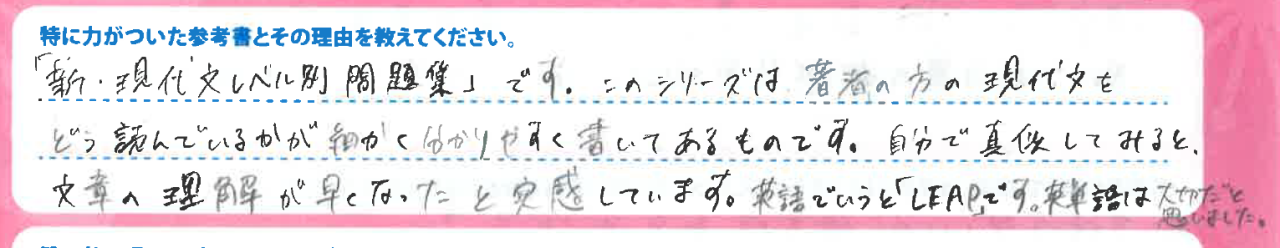 特に力がついた参考書とその理由を教えてください。
「新・現代文レベル別問題集」です。このシリーズは著者の方の現代文を
どう読んでいるかが細かく分かりやすく書いてあるものです。自分で真似してみると、
文章の理解が早くなったと実感しています。英語でいうと「LEAP」です。英単語は大切だと
思いました。